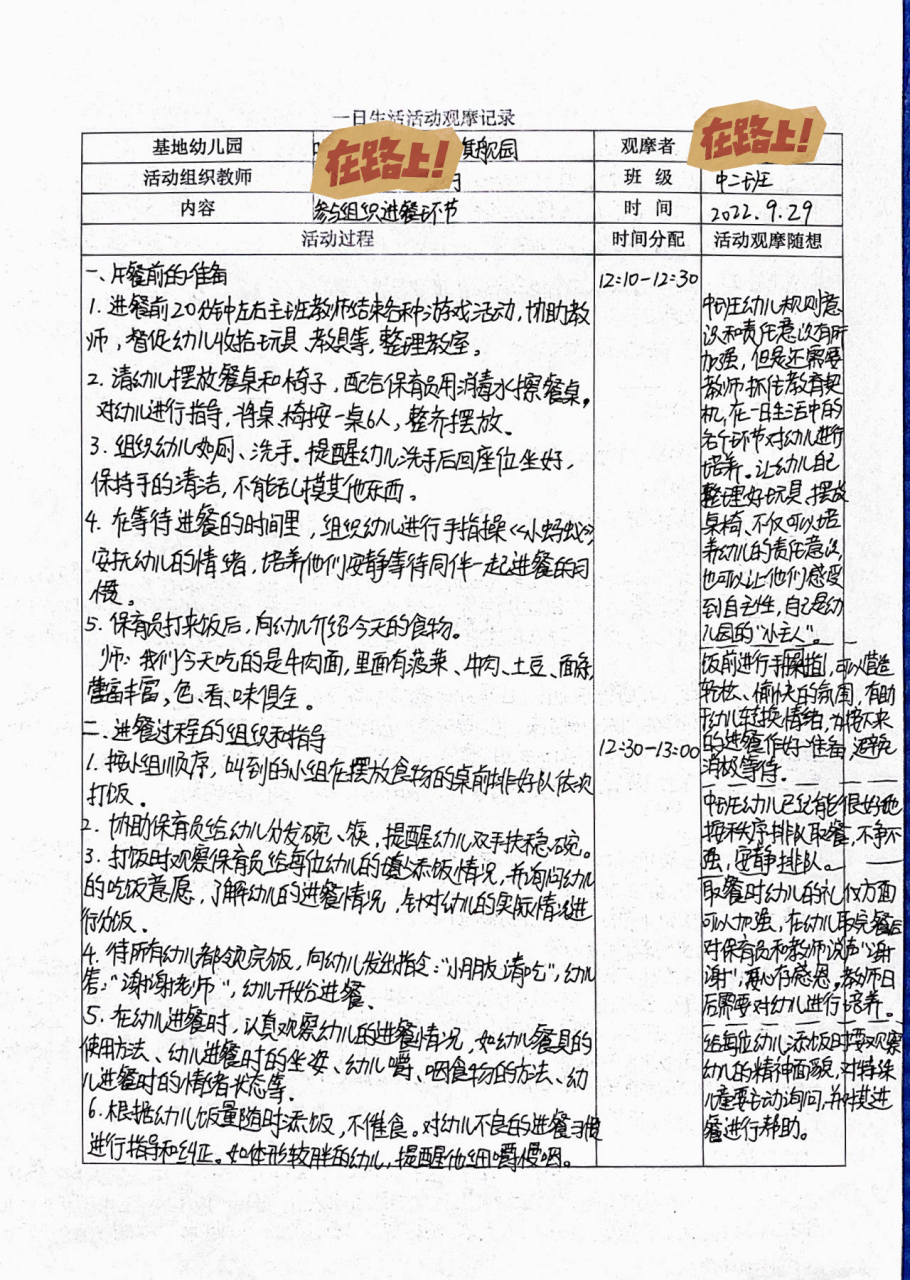 一日生活活动观摩记录
基地幼儿园 在路上! 旗舰园 观摩者 在路上!
活动组织教师 班 级 中二班
内容 参与组织进餐环节 时 间 2022.9.29
活动过程 时间分配 活动观摩随想
一、进餐前的准备
1. 进餐前20分钟左右主班教师结束各种游戏活动,协助教
师,督促幼儿收拾玩具、教具等,整理教室。
2. 请幼儿摆放餐桌和椅子,配合保育员用消毒水擦餐桌,
对幼儿进行指导,将桌、椅按一桌6人,整齐摆放。
3. 组织幼儿如厕、洗手。提醒幼儿洗手后回座位坐好,
保持手的清洁,不能乱摸其他东西。
4. 在等待进餐的时间里,组织幼儿进行手指操《小蚂蚁》
安抚幼儿的情绪,培养他们安静等待同伴一起进餐的习
惯。
5. 保育员打来饭后,向幼儿介绍今天的食物。
师:我们今天吃的是牛肉面,里面有菠菜、牛肉、土豆、面条,
营养丰富,色、香、味俱全。
二、进餐过程的组织和指导
1. 按小组顺序,叫到的小组在摆放食物的桌前排好队依次
打饭。
2. 协助保育员给幼儿分发碗、筷,提醒幼儿双手扶稳碗。
3. 打饭时观察保育员给每位幼儿的添饭情况,并询问幼儿
的吃饭意愿,了解幼儿的进餐情况,针对幼儿的实际情况进
行分饭。
4. 待所有幼儿都领完饭,向幼儿发出指令:“小朋友请吃”,幼儿
答:“谢谢老师”,幼儿开始进餐。
5. 在幼儿进餐时,认真观察幼儿的进餐情况,如幼儿餐具的
使用方法、幼儿进餐时的坐姿、幼儿嚼、咽食物的方法、幼
儿进餐时的情绪状态等.
6. 根据幼儿饭量随时添饭,不催食。对幼儿不良的进餐习惯
进行指导和纠正。如体形较胖的幼儿,提醒他细嚼慢咽。
12:10-12:30
12:30-13:00
中班幼儿规则意
识和责任意识有所
加强,但是还需要
教师抓住教育契
机,在一日生活中的
各个环节对幼儿进行
培养。让幼儿自己
整理好玩具、摆放
桌椅、不仅可以培
养幼儿的责任意识,
也可以让他们感受
到自主性,自己是幼
儿园的“小主人”。
饭前进行手指操,可以营造
轻松、愉快的氛围,有助
于幼儿转换情绪,为接下来
的进餐作好准备,避免
消极等待。
中班幼儿已经能很好地
按秩序排队取餐,不争不
强,安静排队。
取餐时幼儿的礼仪方面
可以加强,在幼儿取完餐后
对保育员和教师说声“谢
谢”,心存感恩。教师日
后需要对幼儿进行培养。
给每位幼儿添饭时要观察
幼儿的精神面貌,对特殊
儿童要主动询问,并对其进
餐进行帮助。